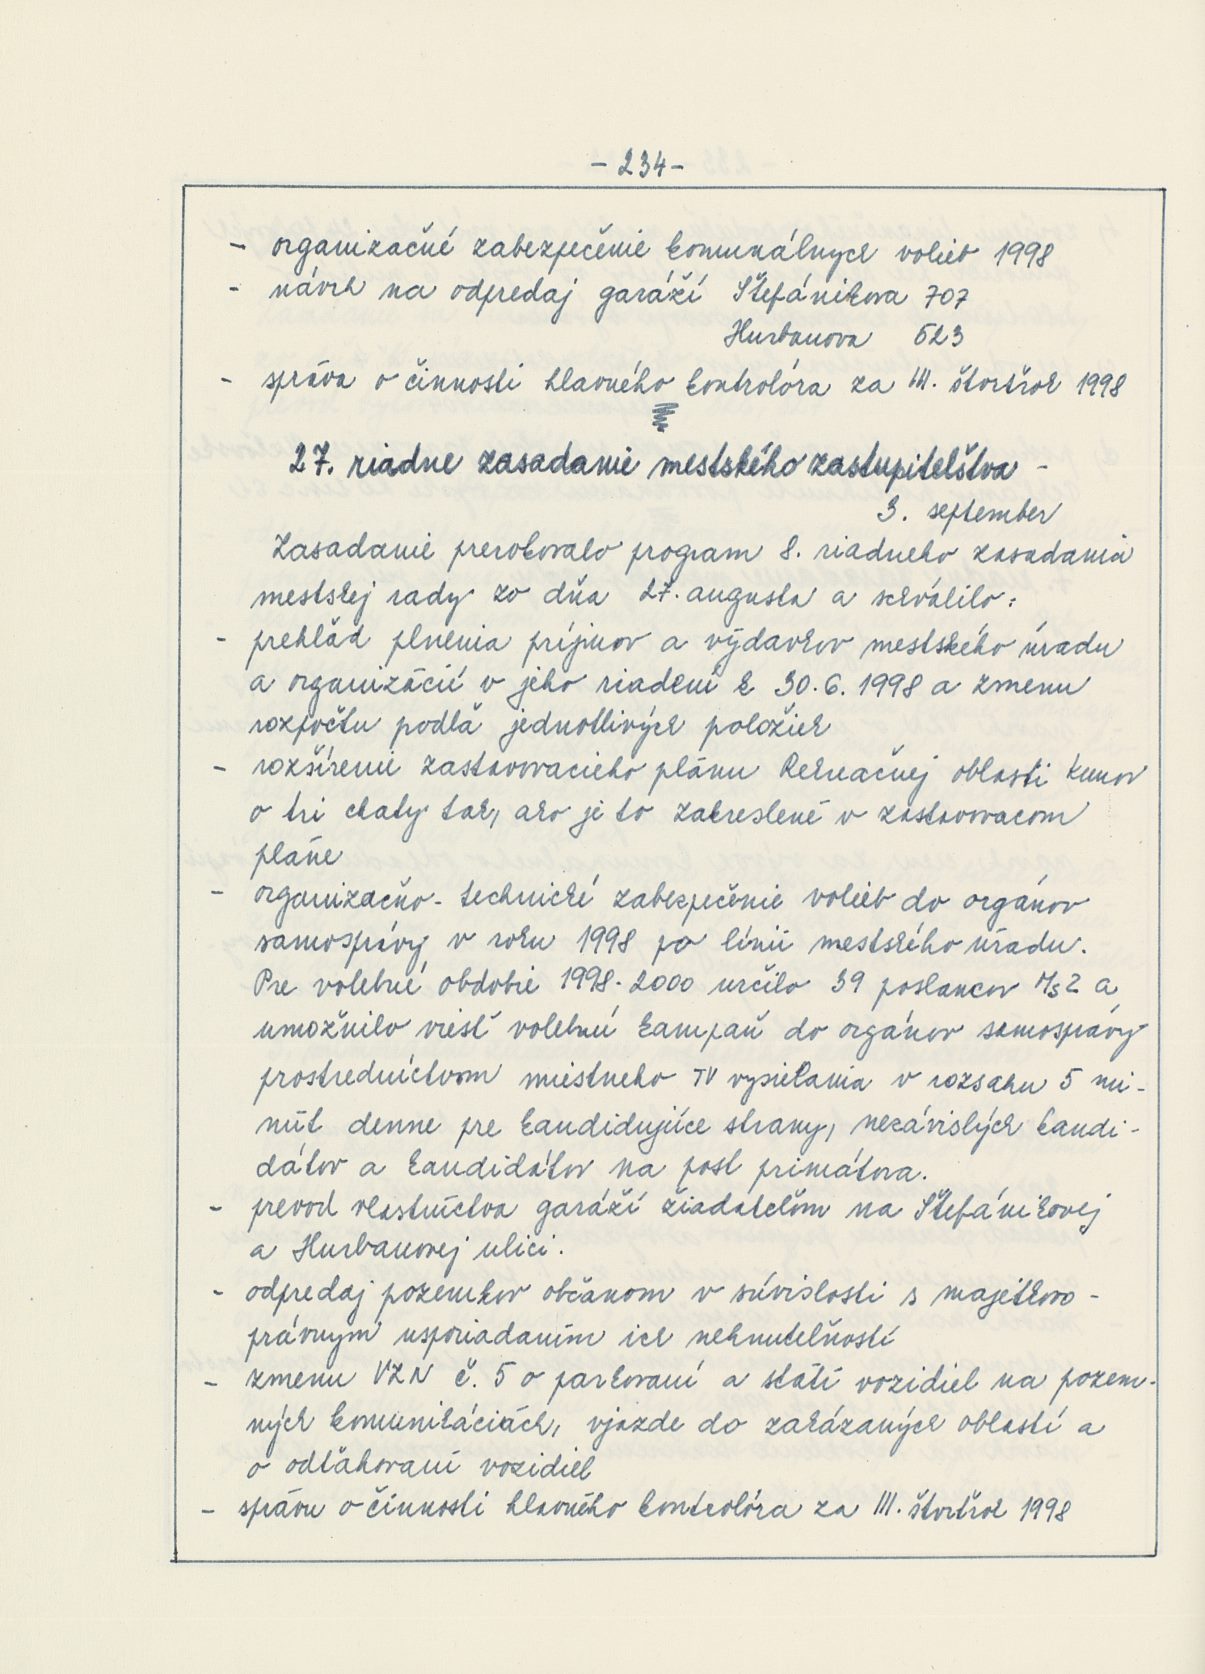 - 234 -
- organizačné zabezpečenie komunálnych volieb 1998
- návrh na odpredaj garáží Štefánikova 707
Hurbanova 523
- správa o činnosti hlavného kontrolóra za III. štvrťrok 1998
27. riadne zasadanie mestského zastupiteľstva -
3. september
Zasadanie prerokovalo program 8. riadneho zasadania
mestskej rady zo dňa 27. augusta a schválilo:
- prehľad plnenia príjmov a výdavkov mestského úradu
a organizácií v jeho riadení k 30.6.1998 a zmenu
rozpočtu podľa jednotlivých položiek
- rozšírenie zastavovacieho plánu Rekreačnej oblasti Kunov
o tri chaty tak, ako je to zakreslené v zastavovacom
pláne
- organizačno-technické zabezpečenie volieb do orgánov
samosprávy v roku 1998 po línii mestského úradu.
Pre volebné obdobie 1998-2000 určilo 39 poslancov MsZ a
umožnilo viesť volebnú kampaň do orgánov samosprávy
prostredníctvom miestneho TV vysielania v rozsahu 5 mi-
nút denne pre kandidujúce strany, nezávislých kandi-
dátov a kandidátov na post primátora.
- prevod vlastníctva garáží žiadateľom na Štefánikovej
a Hurbanovej ulici.
- odpredaj pozemkov občanom v súvislosti s majetkovo-
právnym usporiadaním ich nehnuteľností
- zmenu VZN č. 5 o parkovaní a státí vozidiel na pozem-
ných komunikáciách, vjazde do zakázaných oblastí a
o odťahovaní vozidiel
- správu o činnosti hlavného kontrolóra za III. štvrťrok 1998